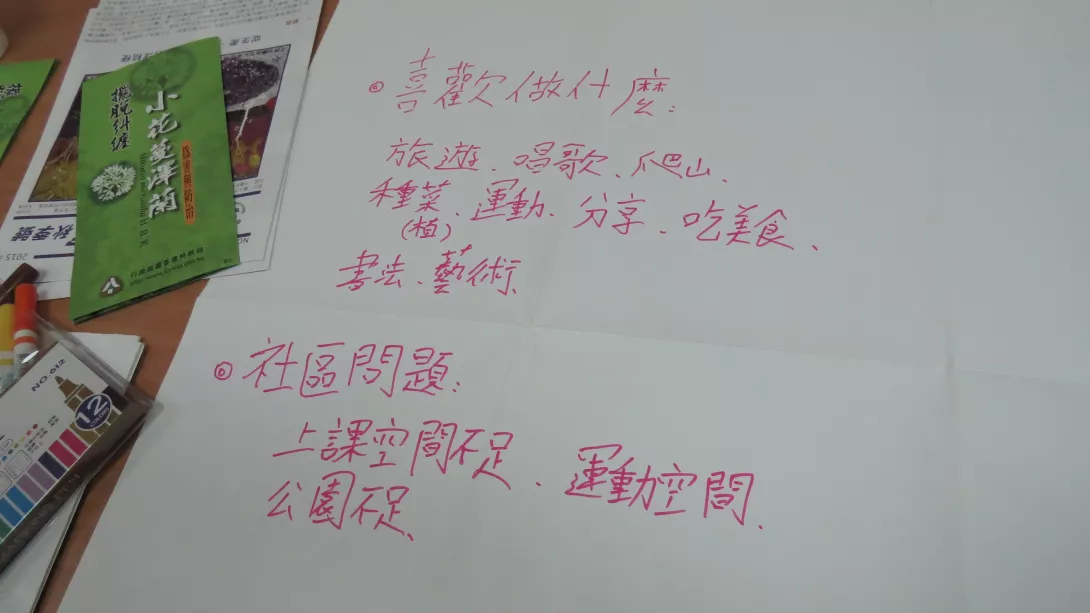 ◎喜歡做什麼:
旅遊、唱歌、爬山、
種菜、運動、分享、吃美食、
(植)
書法、藝術、
◎社區問題:
上課空間不足、運動空間、
公園不足、
擺脫糾纏
小花蔓澤蘭
危害與防治
秋季號
2015
NO 612
12